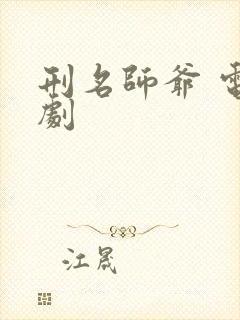 刑名師爺 電
劇
江晟